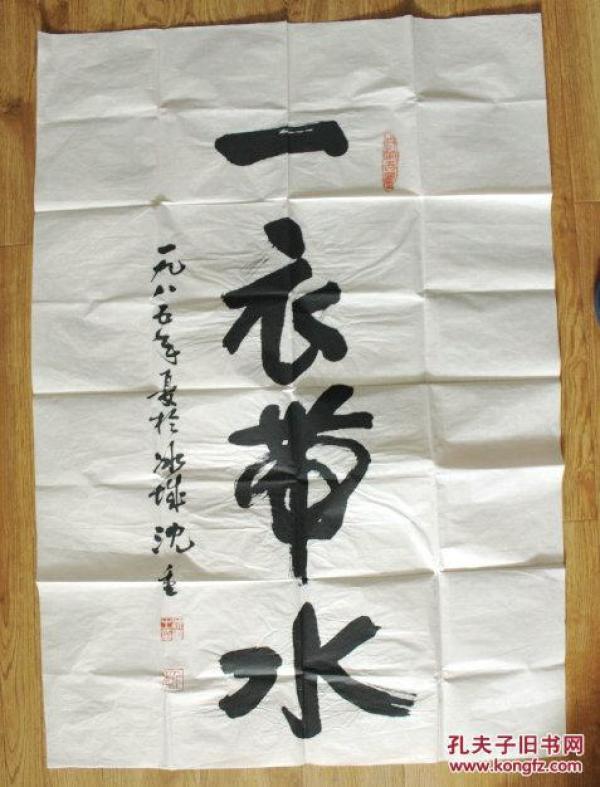 一衣帶水
一九八五年夏於冰城沈
孔夫子旧书网
www.kongfz.com